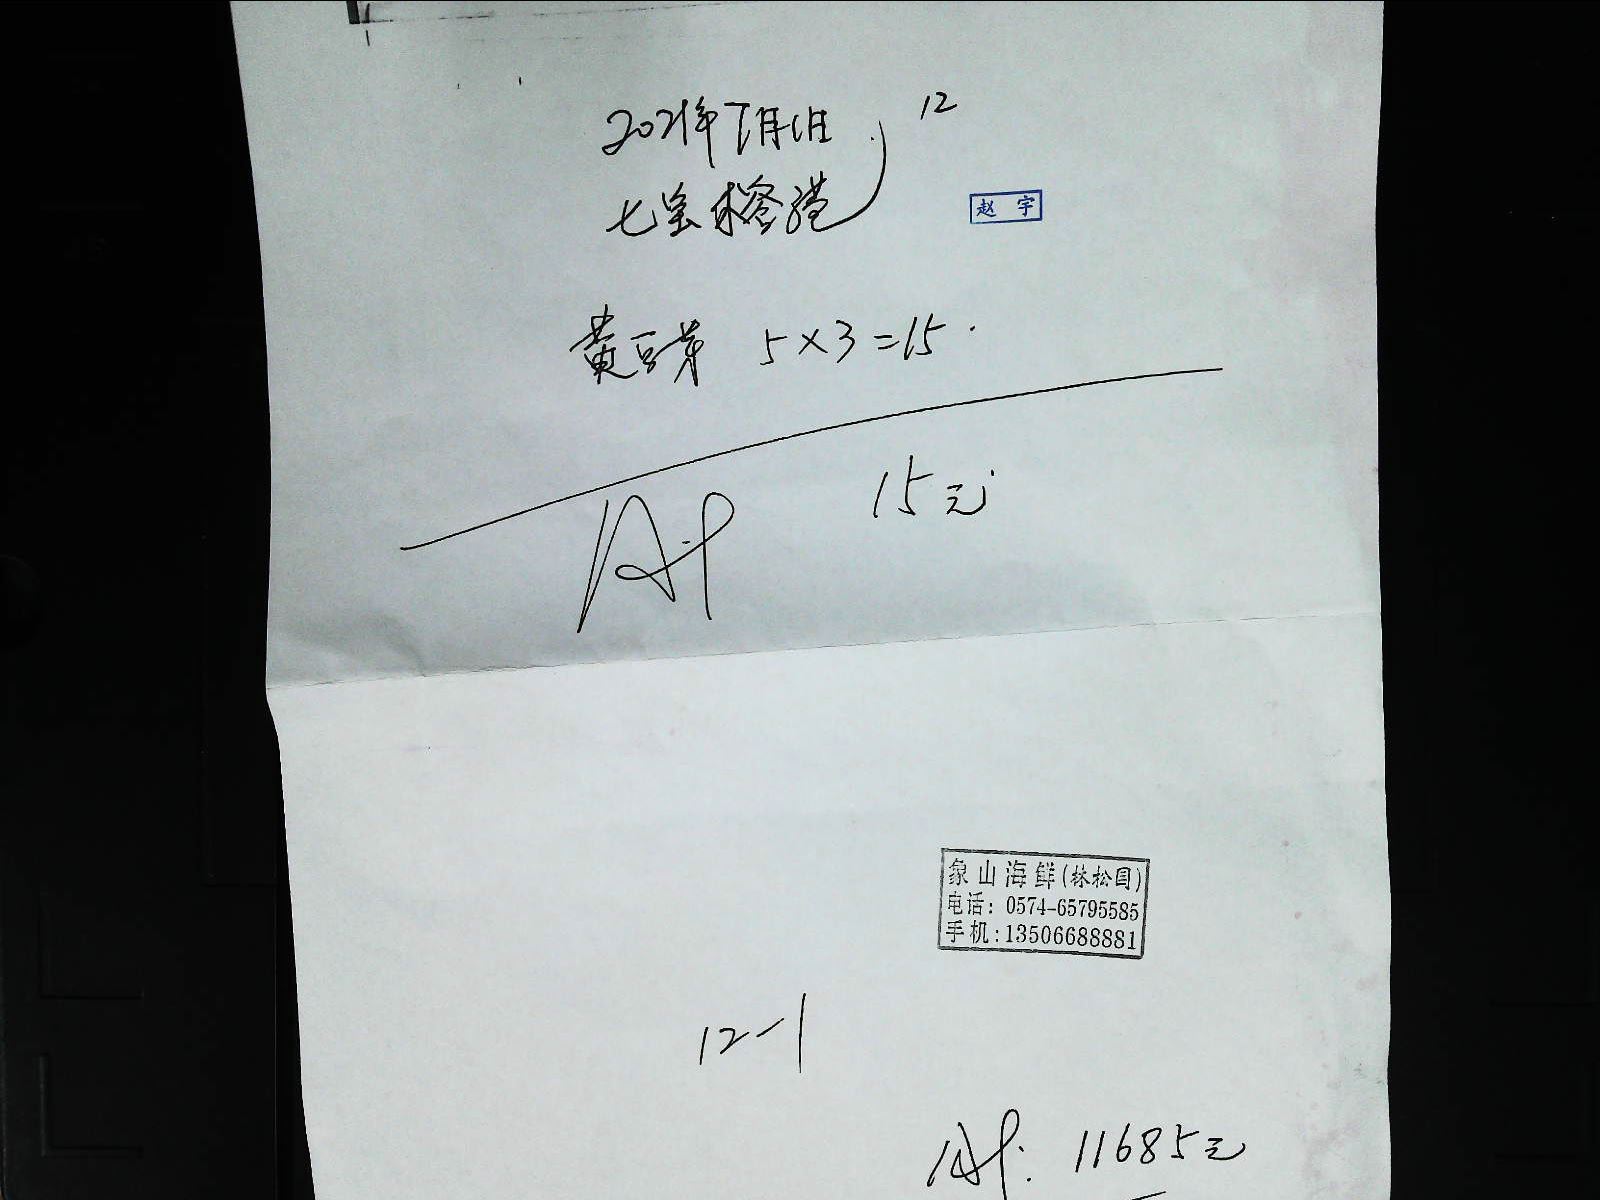 2021年7月1日 12
七宝榕港
赵宇
黄豆芽 5×3=15
15元
象山海鲜(林松国)
电话: 0574-65795585
手机:13506688881
12-1
11685元